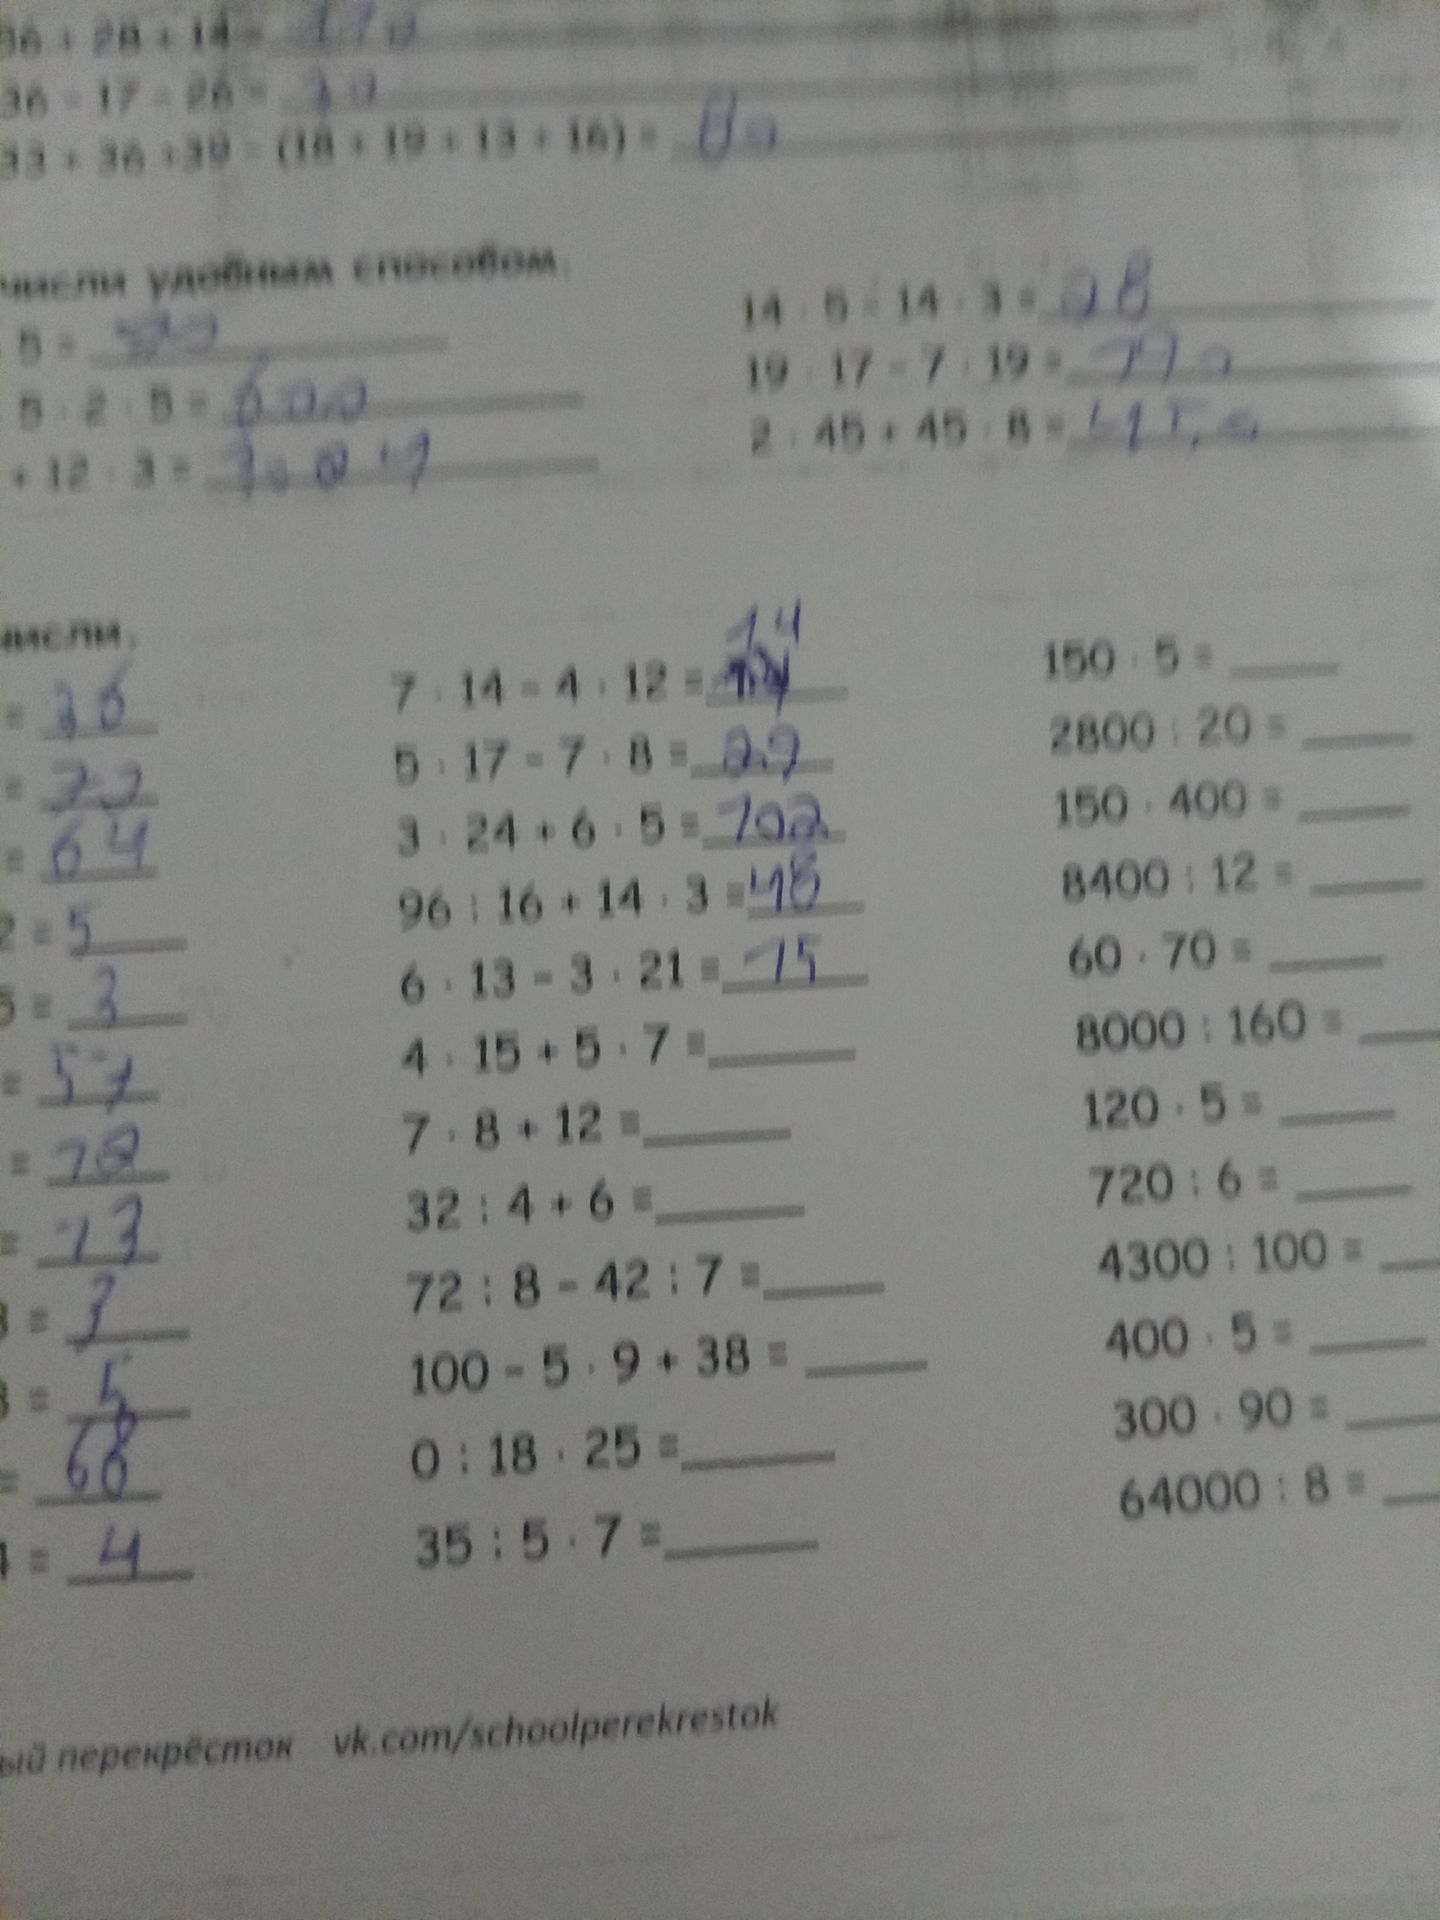 36 + 28 + 14 = 170
36 - 17 - 26 =
33 + 36 +39 - (18 + 19 + 13 + 16) =
числи удобным способом.
5 =
5 · 2 · 5 = 600
+ 12 · 3 =
14 · 5 - 14 · 3 = 28
19 · 17 - 7 · 19 = 190
2 · 45 + 45 · 8 = 450
числи.
= 36
=
= 64
2 = 5
5 = 3
= 57
= 18
= 13
3 = 7
3 = 5
= 68
4 = 4
7 · 14 - 4 · 12 = 14
5 · 17 - 7 · 8 = 29
3 · 24 + 6 · 5 = 102
96 : 16 + 14 · 3 = 48
6 · 13 - 3 · 21 = 15
4 · 15 + 5 · 7 =
7 · 8 + 12 =
32 : 4 + 6 =
72 : 8 - 42 : 7 =
100 - 5 · 9 + 38 =
0 : 18 · 25 =
35 : 5 · 7 =
150 · 5 =
2800 : 20 =
150 · 400 =
8400 : 12 =
60 · 70 =
8000 : 160 =
120 · 5 =
720 : 6 =
4300 : 100 =
400 · 5 =
300 · 90 =
64000 : 8 =
ый перекрёсток vk.com/schoolperekrestok